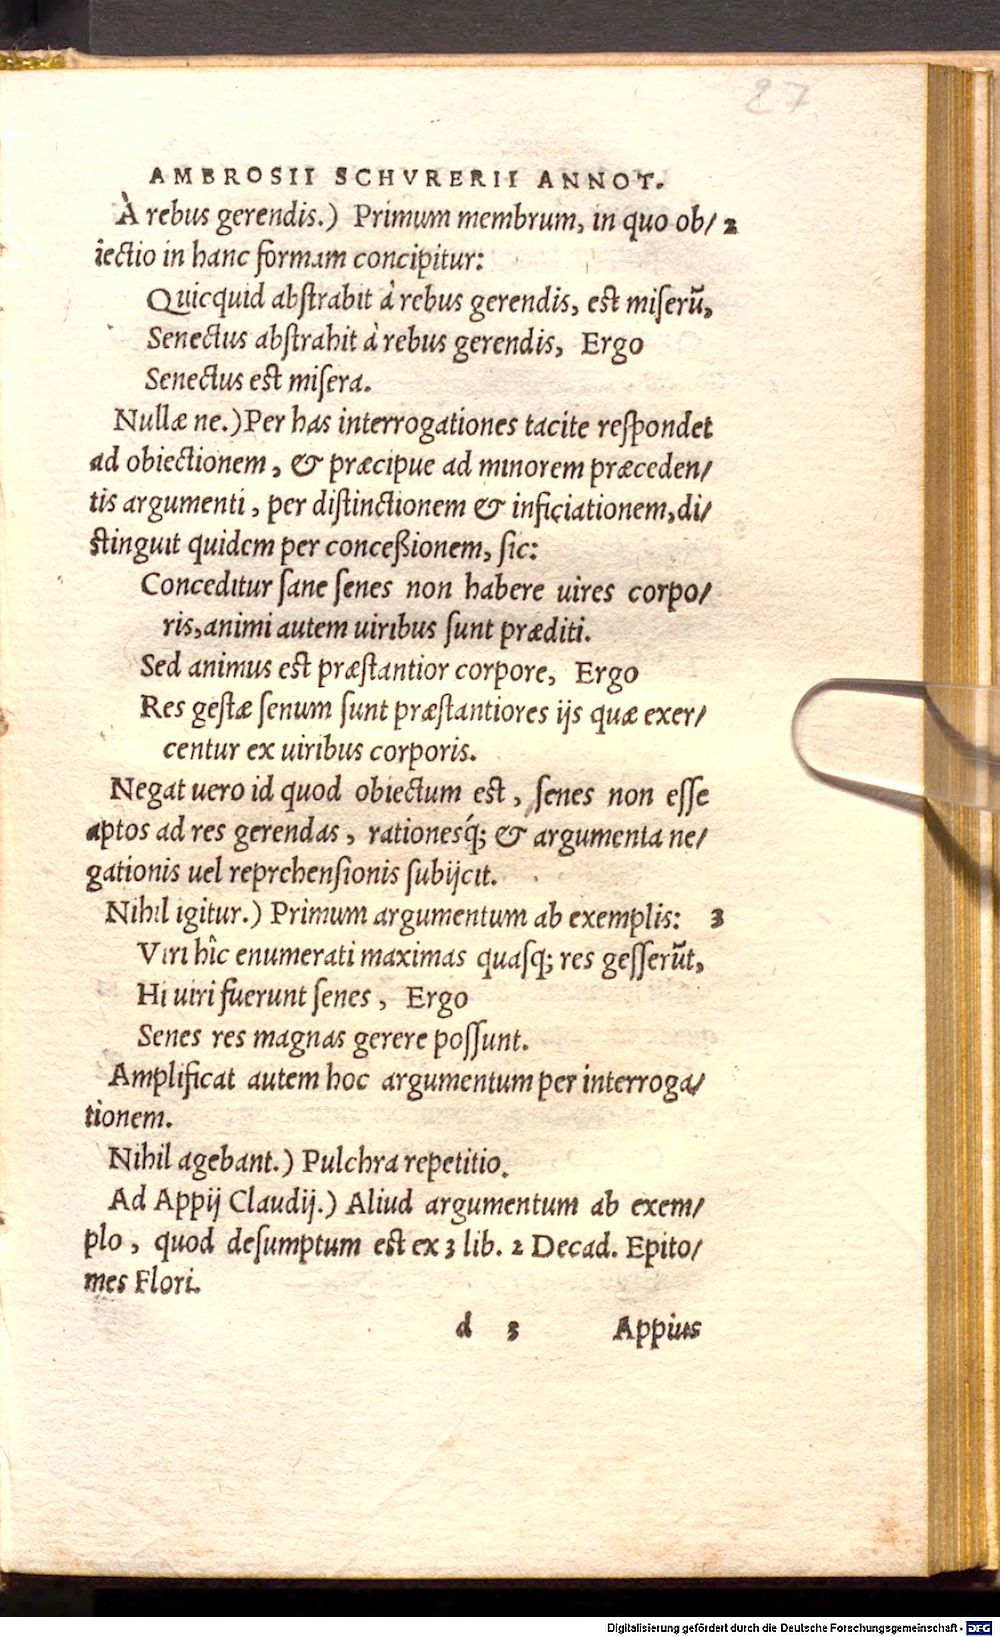 27
AMBROSII SCHVRERII ANNOT.
À rebus gerendis.) Primum membrum, in quo ob/ 2
iectio in hanc formam concipitur:
Quicquid abstrahit à rebus gerendis, est miserũ,
Senectus abstrahit à rebus gerendis, Ergo
Senectus est misera.
Nullæ ne.) Per has interrogationes tacite respondet
ad obiectionem, & præcipue ad minorem præceden/
tis argumenti, per distinctionem & inficiationem, di/
stinguit quidem per conceßionem, sic:
Conceditur sane senes non habere uires corpo/
ris, animi autem uiribus sunt præditi.
Sed animus est præstantior corpore, Ergo
Res gestæ senum sunt præstantiores ijs quæ exer/
centur ex uiribus corporis.
Negat uero id quod obiectum est, senes non esse
aptos ad res gerendas, rationesq́; & argumenta ne/
gationis uel reprehensionis subijcit.
Nihil igitur.) Primum argumentum ab exemplis: 3
Viri hîc enumerati maximas quasq; res gesserũt,
Hi uiri fuerunt senes, Ergo
Senes res magnas gerere possunt.
Amplificat autem hoc argumentum per interroga/
tionem.
Nihil agebant.) Pulchra repetitio.
Ad Appij Claudij.) Aliud argumentum ab exem/
plo, quod desumptum est ex 3 lib. 2 Decad. Epito/
mes Flori.
d 3 Appius
Digitalisierung gefördert durch die Deutsche Forschungsgemeinschaft - DFG